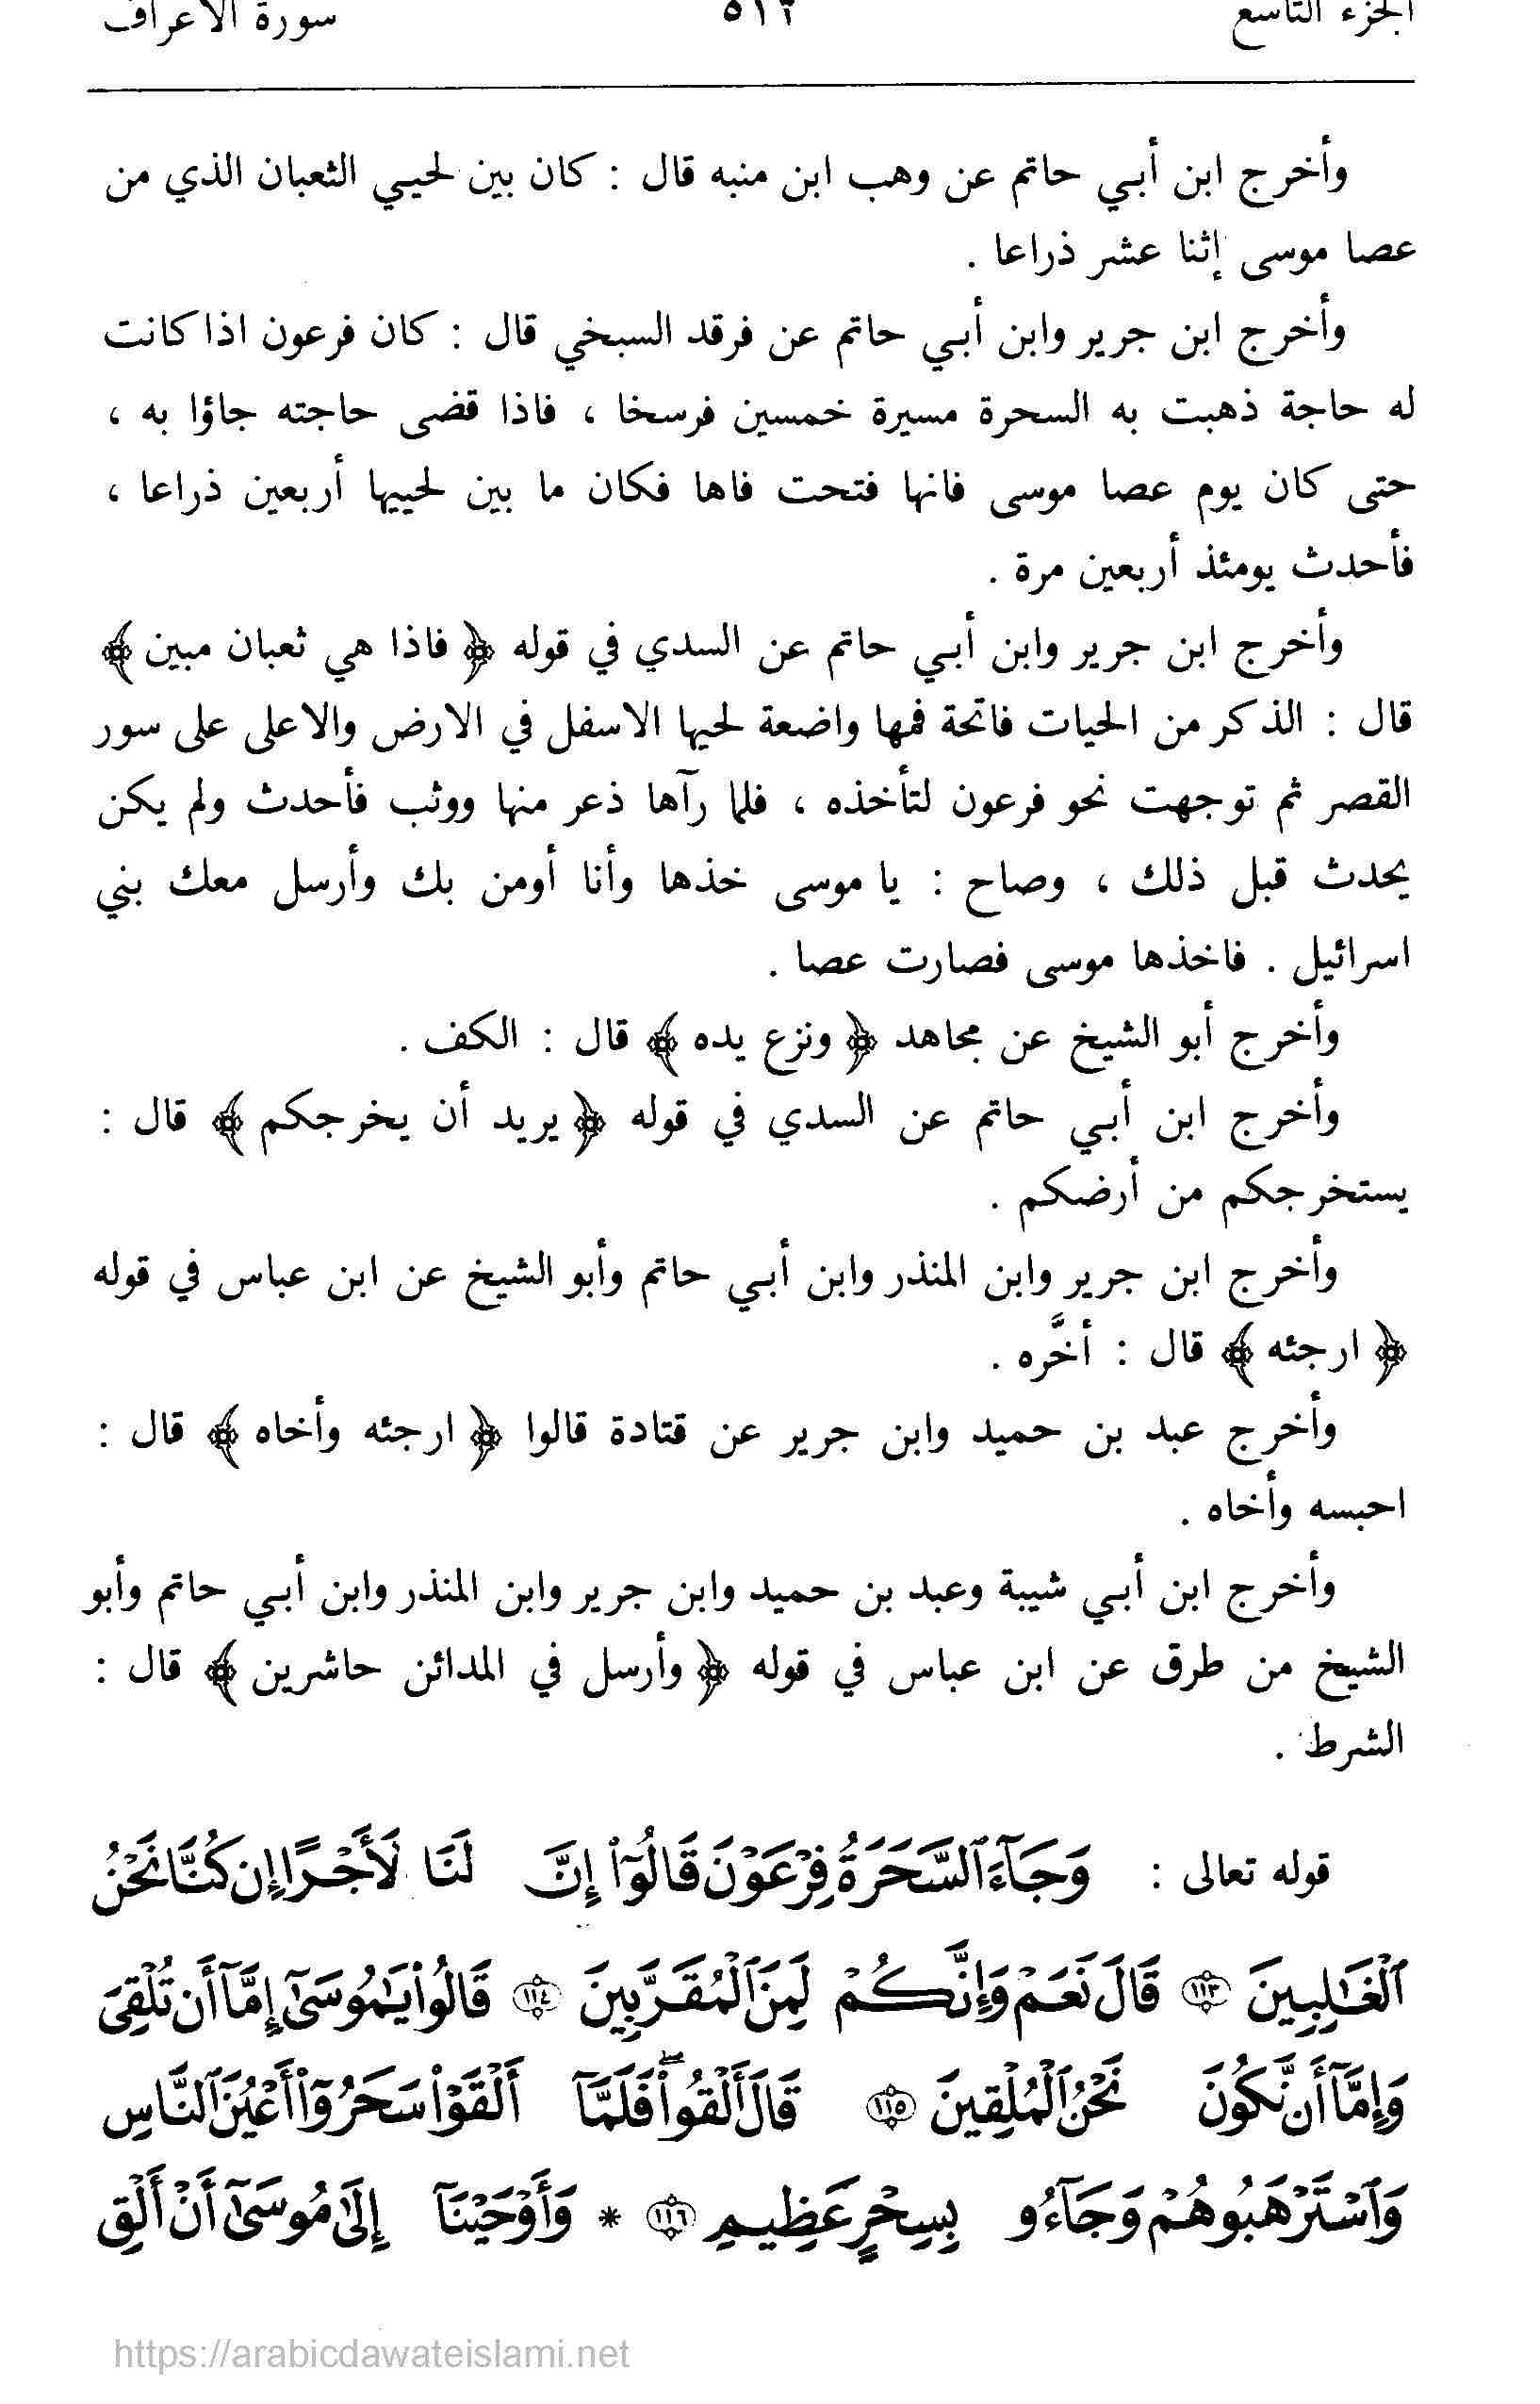 الجزء التاسع ٥١٢ سورة الاعراف
وأخرج ابن أبي حاتم عن وهب ابن منبه قال : كان بين لحيي الثعبان الذي من
عصا موسى إثنا عشر ذراعا .
وأخرج ابن جرير وابن أبي حاتم عن فرقد السبخي قال : كان فرعون اذا كانت
له حاجة ذهبت به السحرة مسيرة خمسين فرسخا ، فاذا قضى حاجته جاؤا به ،
حتى كان يوم عصا موسى فانها فتحت فاها فكان ما بين لحييها أربعين ذراعا ،
فأحدث يومئذ أربعين مرة .
وأخرج ابن جرير وابن أبي حاتم عن السدي في قوله ﴿ فاذا هي ثعبان مبين ﴾
قال : الذكر من الحيات فاتحة فمها واضعة لحيها الاسفل في الارض والاعلى على سور
القصر ثم توجهت نحو فرعون لتأخذه ، فلما رآها ذعر منها ووثب فأحدث ولم يكن
يحدث قبل ذلك ، وصاح : يا موسى خذها وأنا أومن بك وأرسل معك بني
اسرائيل . فاخذها موسى فصارت عصا .
وأخرج أبو الشيخ عن مجاهد ﴿ ونزع يده ﴾ قال : الكف .
وأخرج ابن أبي حاتم عن السدي في قوله ﴿ يريد أن يخرجكم ﴾ قال :
يستخرجكم من أرضكم .
وأخرج ابن جرير وابن المنذر وابن أبي حاتم وأبو الشيخ عن ابن عباس في قوله
﴿ ارجئه ﴾ قال : أخَّره .
وأخرج عبد بن حميد وابن جرير عن قتادة قالوا ﴿ ارجئه وأخاه ﴾ قال :
احبسه وأخاه .
وأخرج ابن أبي شيبة وعبد بن حميد وابن جرير وابن المنذر وابن أبي حاتم وأبو
الشيخ من طرق عن ابن عباس في قوله ﴿ وأرسل في المدائن حاشرين ﴾ قال :
الشرط .
قوله تعالى : وَجَآءَ ٱلسَّحَرَةُ فِرْعَوْنَ قَالُوٓا۟ إِنَّ لَنَا لَأَجْرًا إِن كُنَّا نَحْنُ
ٱلْغَٰلِبِينَ ١١٣ قَالَ نَعَمْ وَإِنَّكُمْ لَمِنَ ٱلْمُقَرَّبِينَ ١١٤ قَالُوا۟ يَٰمُوسَىٰٓ إِمَّآ أَن تُلْقِىَ
وَإِمَّآ أَن نَّكُونَ نَحْنُ ٱلْمُلْقِينَ ١١٥ قَالَ أَلْقُوا۟ۖ فَلَمَّآ أَلْقَوْا۟ سَحَرُوٓا۟ أَعْيُنَ ٱلنَّاسِ
وَٱسْتَرْهَبُوهُمْ وَجَآءُو بِسِحْرٍ عَظِيمٍ ١١٦ * وَأَوْحَيْنَآ إِلَىٰ مُوسَىٰٓ أَنْ أَلْقِ
https://arabicdawateislami.net